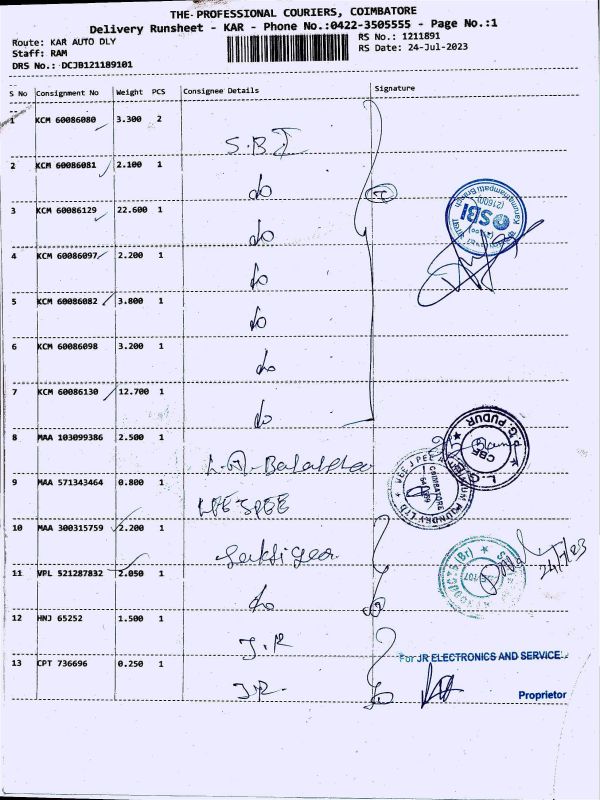 THE PROFESSIONAL COURIERS, COIMBATORE
Delivery Runsheet - KAR - Phone No.:0422-3505555 - Page No.:1
Route: KAR AUTO DLY
Staff: RAM
DRS No.: DCJB121189101
RS No.: 1211891
RS Date: 24-Jul-2023
S No Consignment No Weight PCS Consignee Details Signature
1 KCM 60086080 3.300 2 S.B.I
2 KCM 60086081 2.100 1 do
3 KCM 60086129 22.600 1 do
4 KCM 60086097 2.200 1 do
5 KCM 60086082 3.800 1 do
6 KCM 60086098 3.200 1 do
7 KCM 60086130 12.700 1 do
8 MAA 103099386 2.500 1
9 MAA 571343464 0.800 1
10 MAA 300315759 2.200 1
11 VPL 521287832 2.050 1 do
12 HNJ 65252 1.500 1 J.R
13 CPT 736696 0.250 1 J.R.
SBI
(21600)
P.G. PUDUR
CBE
COIMBATORE
24/7/23
For JR ELECTRONICS AND SERVICE
Proprietor